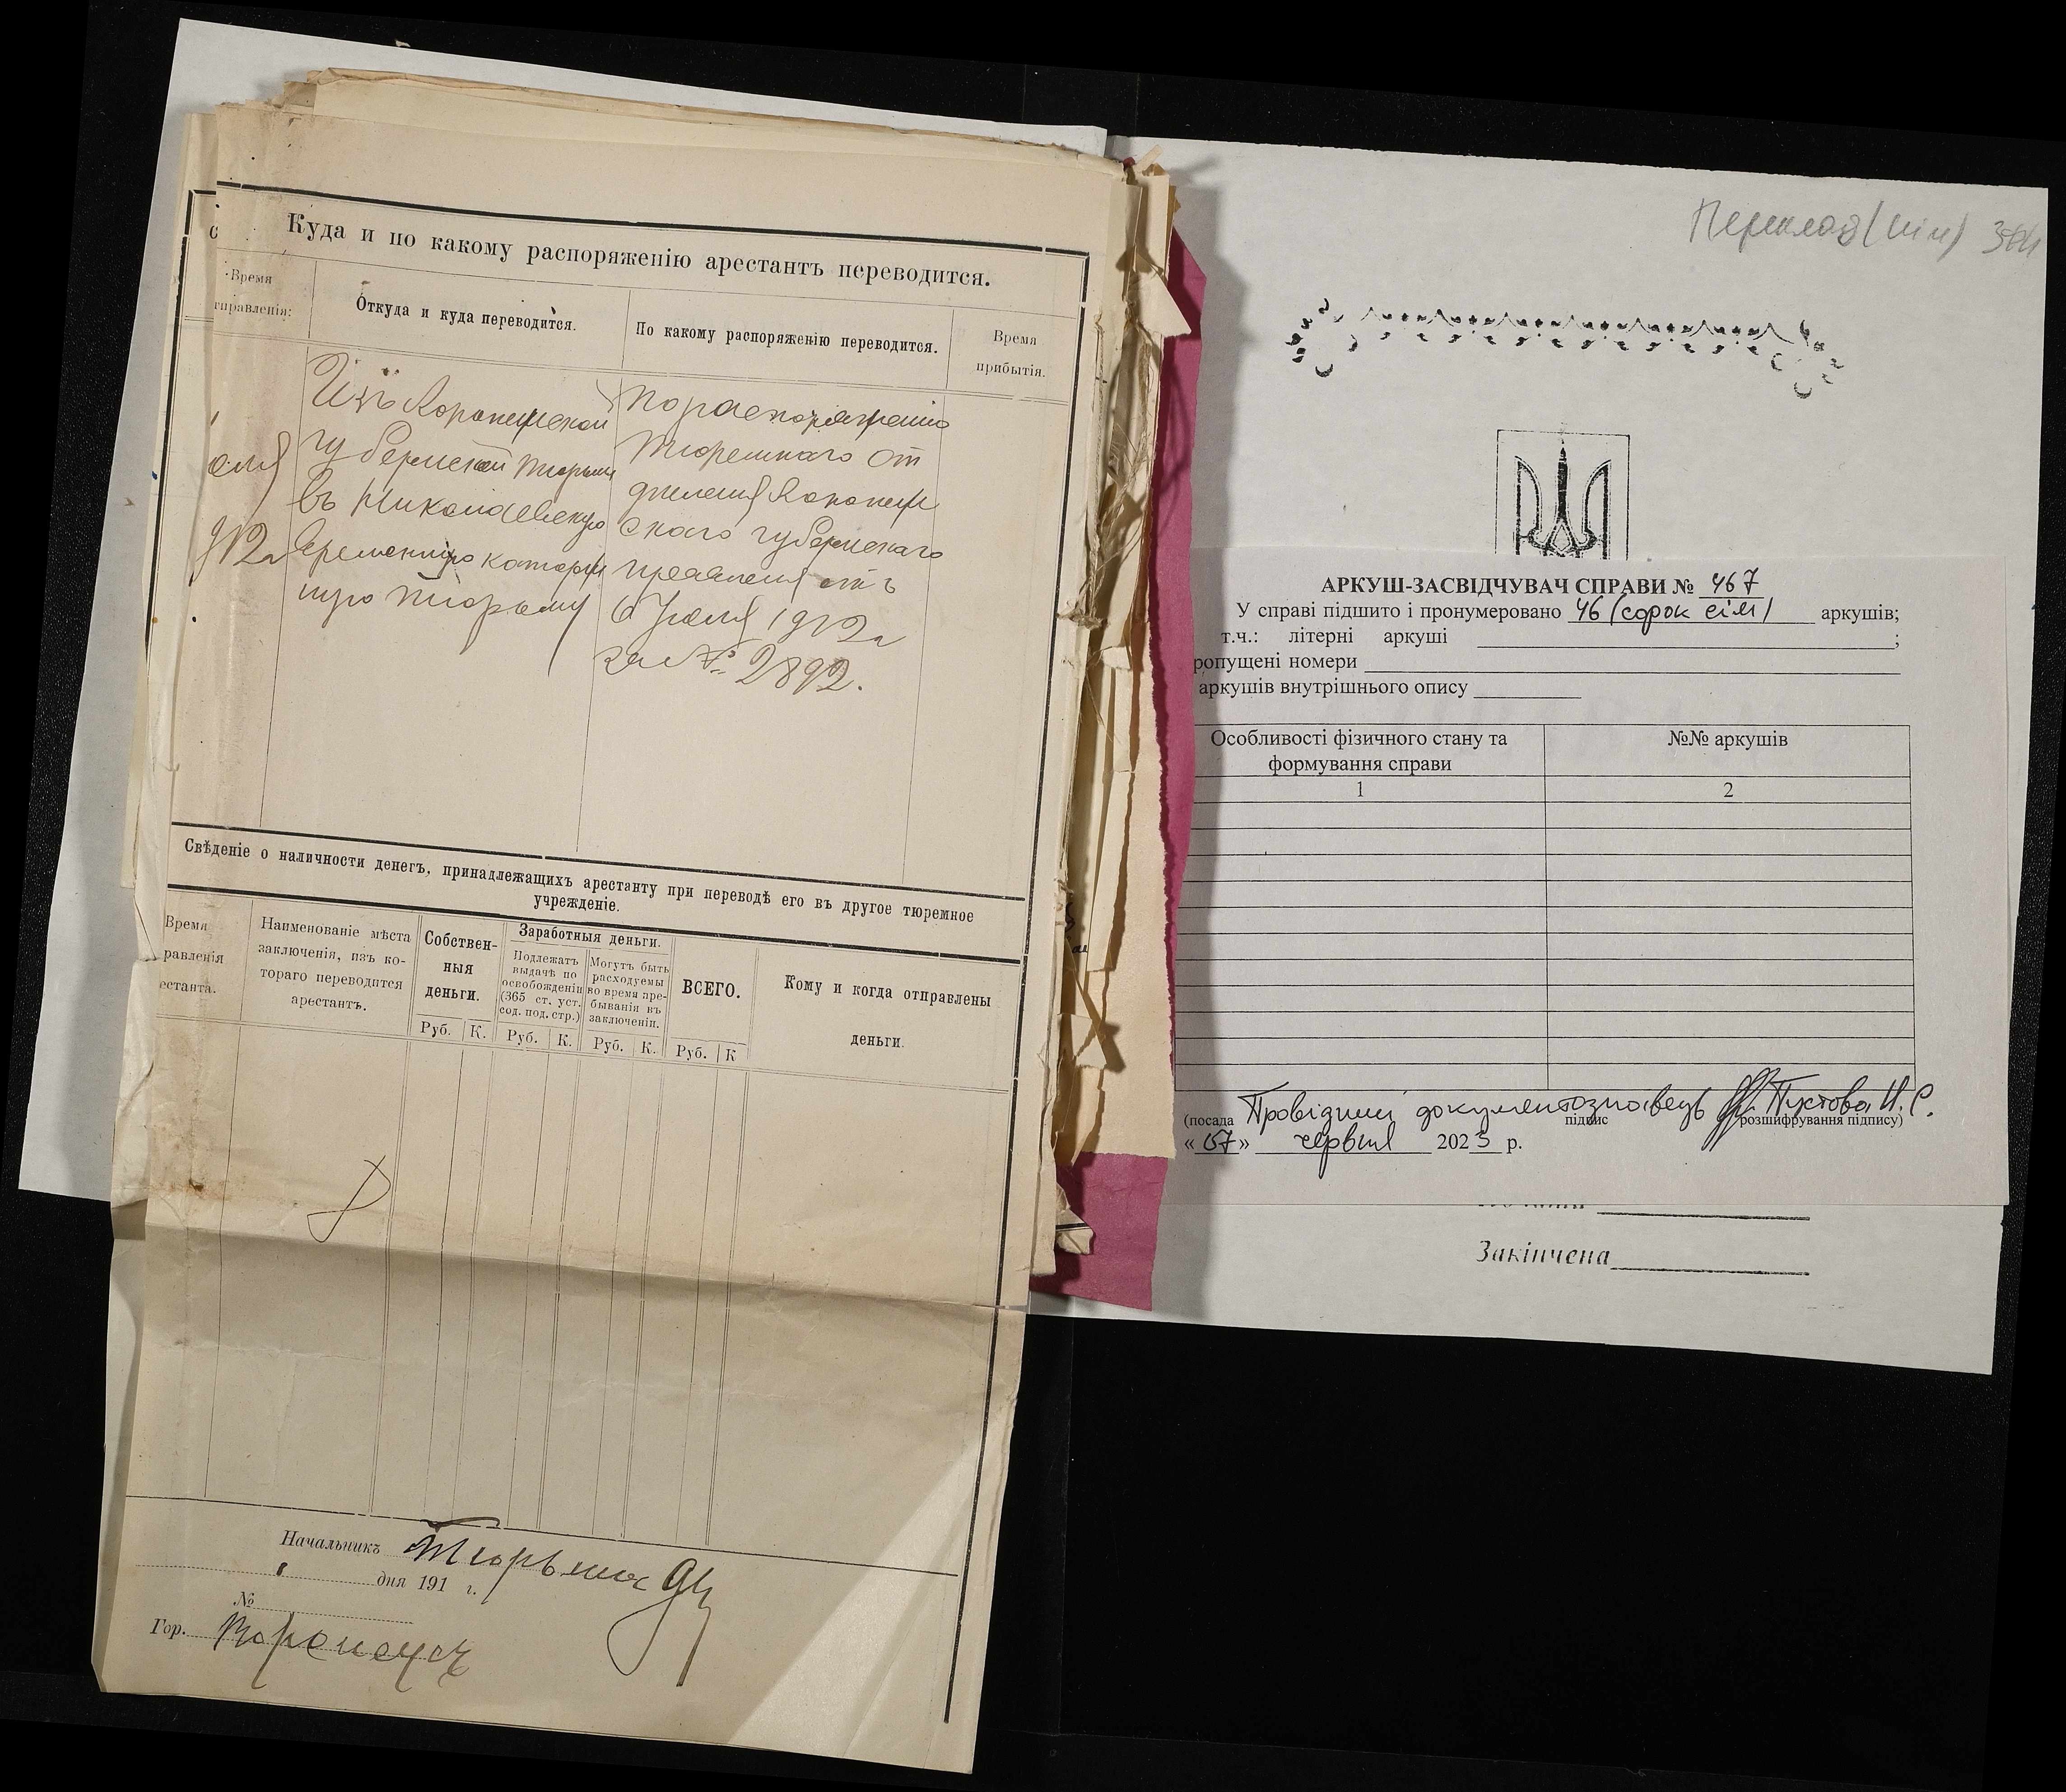 Куда и по какому распоряженію арестантъ переводится.
Время
тправленія:
Откуда и куда переводится.
По какому распоряженію переводится.
Время
прибытія.
юля
912 г
Изъ Воронежской
губернской тюрьмы
въ Николаевскую
временную каторж
ную тюрьму
По распоряженію
Тюремнаго от
деленія Воронеж
скаго губернскаго
правленія отъ
6 Июля 1912 г
за № 2892.
Свѣденіе о наличности денегъ, принадлежащихъ арестанту при переводѣ его въ другое тюремное
учрежденіе.
Время
равленія
естанта.
Наименованіе мѣста
заключенія, изъ ко-
тораго переводится
арестантъ.
Собствен-
ныя
деньги.
Руб. К.
Заработныя деньги.
Подлежатъ
выдачѣ по
освобожденіи
(365 ст. уст.
сод. под. стр.)
Руб. К.
Могутъ быть
расходуемы
во время пре-
быванія въ
заключеніи.
Руб. К.
ВСЕГО.
Руб. К
Кому и когда отправлены
деньги.
Начальникъ Тюрьмы
дня 191 г.
№
Гор. Воронежъ
Переклад (нім)
АРКУШ-ЗАСВІДЧУВАЧ СПРАВИ № 467
У справі підшито і пронумеровано 46 (сорок сім) аркушів;
т.ч.: літерні аркуші ;
ропущені номери
аркушів внутрішнього опису
Особливості фізичного стану та
формування справи
№№ аркушів
1
2
Провідний документознавець Пустова Н. С.
(посада підпис розшифрування підпису)
«07» червня 2023 р.
Закінчена